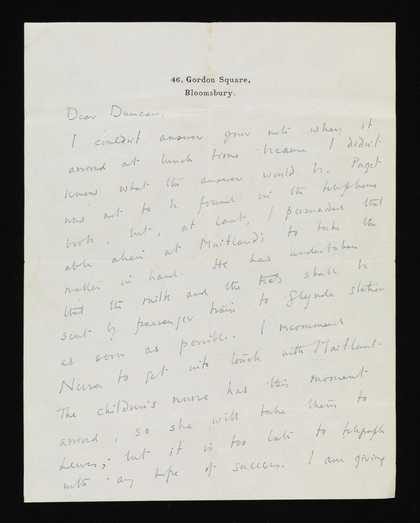 46, Gordon Square,
Bloomsbury.
Dear Duncan,
I couldn't answer your note when it
arrived at lunch time because I didn't
know what the answer would be. Paget
was not to be found in the telephone
book, but, at last, I persuaded that
able man at Maitland's to take the
matter in hand. He has undertaken
that the milk and the shall be
sent by passenger train to Glynde station
as soon as possible. I recommend
Nessa to get into touch with Maitland.
The children's nurse has this moment
arrived, so she will take them to
Lewes; but it is too late to telegraph
with any hope of success. I am giving